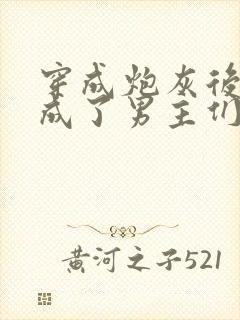 穿成炮灰後
成了男主们
黄河之子521